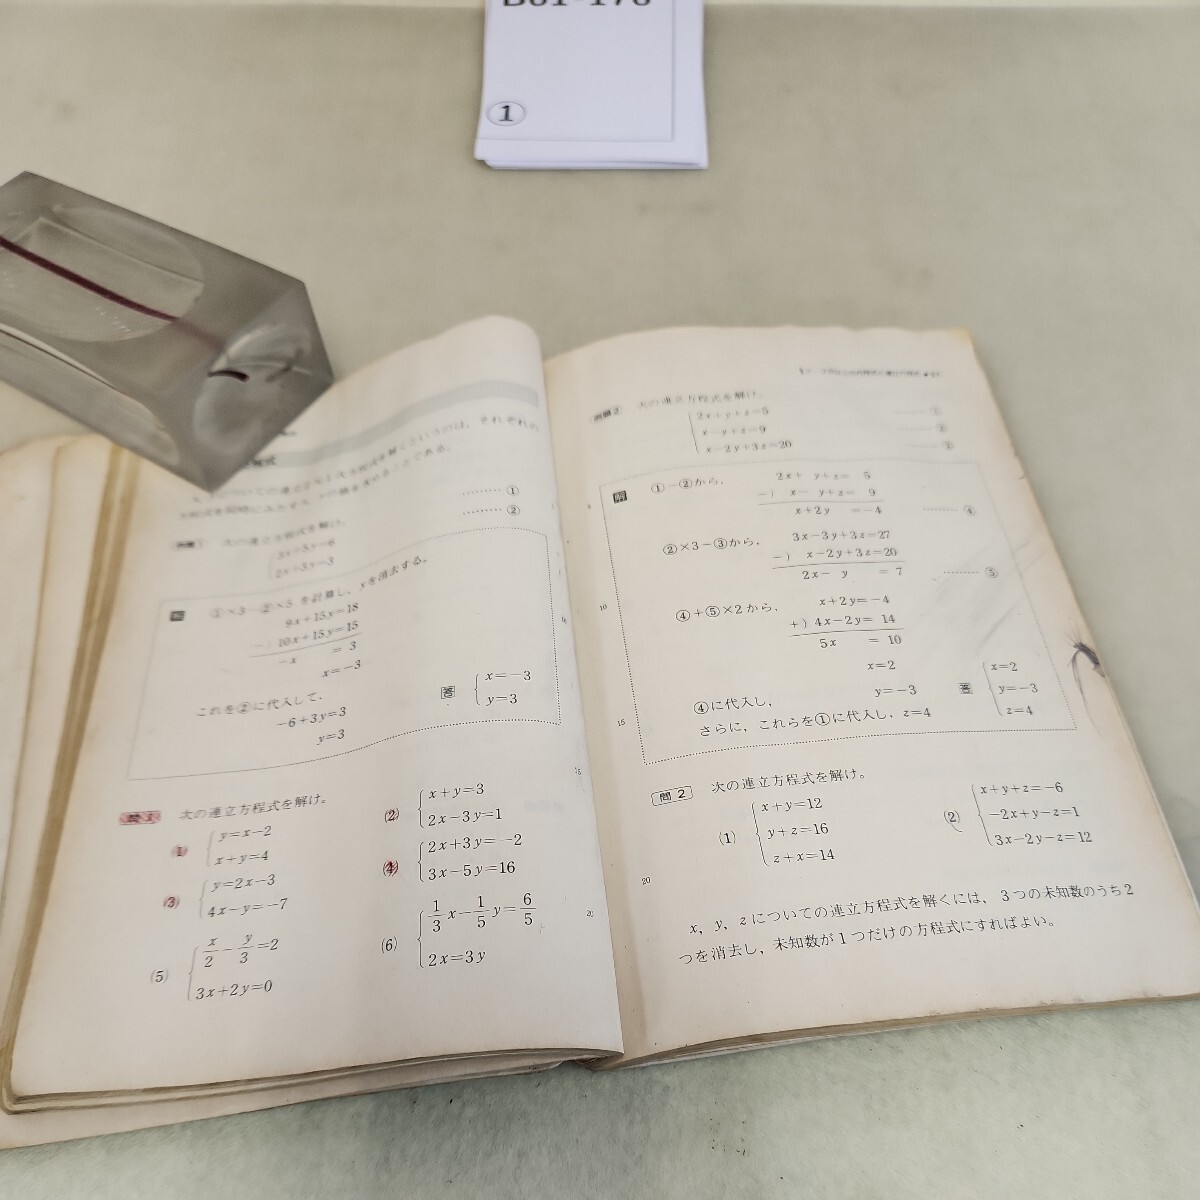 ①
についての連立2元1次方程式を解くというのは、それぞれの
方程式を同時にみたす x, y の値を求めることである。
例題1 次の連立方程式を解け。
3x+5y=6 ………①
2x+3y=3 ………②
①×3−②×5 を計算し、yを消去する。
9x+15y=18
−) 10x+15y=15
−x = 3
x=−3
これを②に代入して、
−6+3y=3
y=3
答 x=−3
y=3
問1 次の連立方程式を解け。
(1) y=x−2
x+y=4
(2) x+y=3
2x−3y=1
(3) y=2x−3
4x−y=−7
(4) 2x+3y=−2
3x−5y=16
(5) x/2−y/3=2
3x+2y=0
(6) 1/3x−1/5y=6/5
2x=3y
15
20
例題2 次の連立方程式を解け。
2x+y+z=5 ………①
x−y+z=9 ………②
x−2y+3z=20 ………③
解 ①−②から、 2x+ y+z= 5
−) x− y+z= 9
x+2y =−4 ………④
②×3−③から、 3x−3y+3z=27
−) x−2y+3z=20
2x− y = 7 ………⑤
④+⑤×2から、 x+2y=−4
+) 4x−2y= 14
5x = 10
x=2
④に代入し、 y=−3
さらに、これらを①に代入し、z=4
答 x=2
y=−3
z=4
問2 次の連立方程式を解け。
(1) x+y=12
y+z=16
z+x=14
(2) x+y+z=−6
−2x+y−z=1
3x−2y−z=12
x, y, z についての連立方程式を解くには、3つの未知数のうち2
つを消去し、未知数が1つだけの方程式にすればよい。
10
15
20